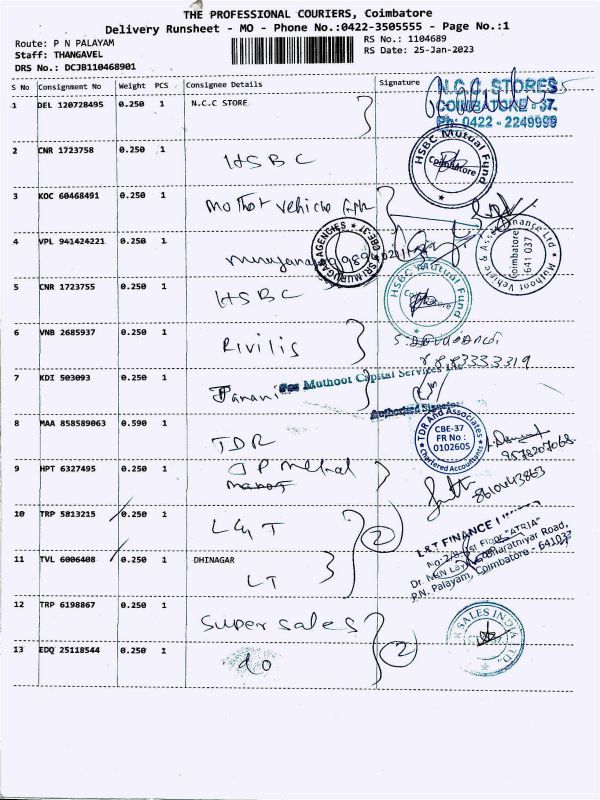 THE PROFESSIONAL COURIERS, Coimbatore
Delivery Runsheet - MO - Phone No.:0422-3505555 - Page No.:1
Route: P N PALAYAM
Staff: THANGAVEL
DRS No.: DCJB110468901
RS No.: 1104689
RS Date: 25-Jan-2023
S No Consignment No Weight PCS Consignee Details Signature
1 DEL 120728495 0.250 1 N.C.C STORE
N.C.C. STORES
COIMBATORE - 37.
Ph: 0422 - 2249999
2 CNR 1723758 0.250 1 HSBC
HSBC Mutual Fund
Coimbatore
3 KOC 60468491 0.250 1 Mothot vehicle
4 VPL 941424221 0.250 1
SRI MURUGAN AGENCIES
CBE-37
Muthoot Vehicle & Asset Finance Ltd
Coimbatore
641 037
5 CNR 1723755 0.250 1 HSBC
HSBC Mutual Fund
6 VNB 2685937 0.250 1 Rivilis
7 KDI 503093 0.250 1 Janani
For Muthoot Capital Services Ltd
Authorised Signatory
8 MAA 858589063 0.590 1 TDR
TDR And Associates
CBE-37
FR No :
010260S
Chartered Accountants
9578207068
9 HPT 6327495 0.250 1 JP Metal
8610443863
10 TRP 5813215 0.250 1 L&T
2
L&T FINANCE
"ATRIA"
Bharathiyar Road,
P.N. Palayam, Coimbatore - 641037
11 TVL 6006408 0.250 1 DHINAGAR
LT
12 TRP 6198867 0.250 1 Super sales
SALES INDIA
2
13 EDQ 25118544 0.250 1 do